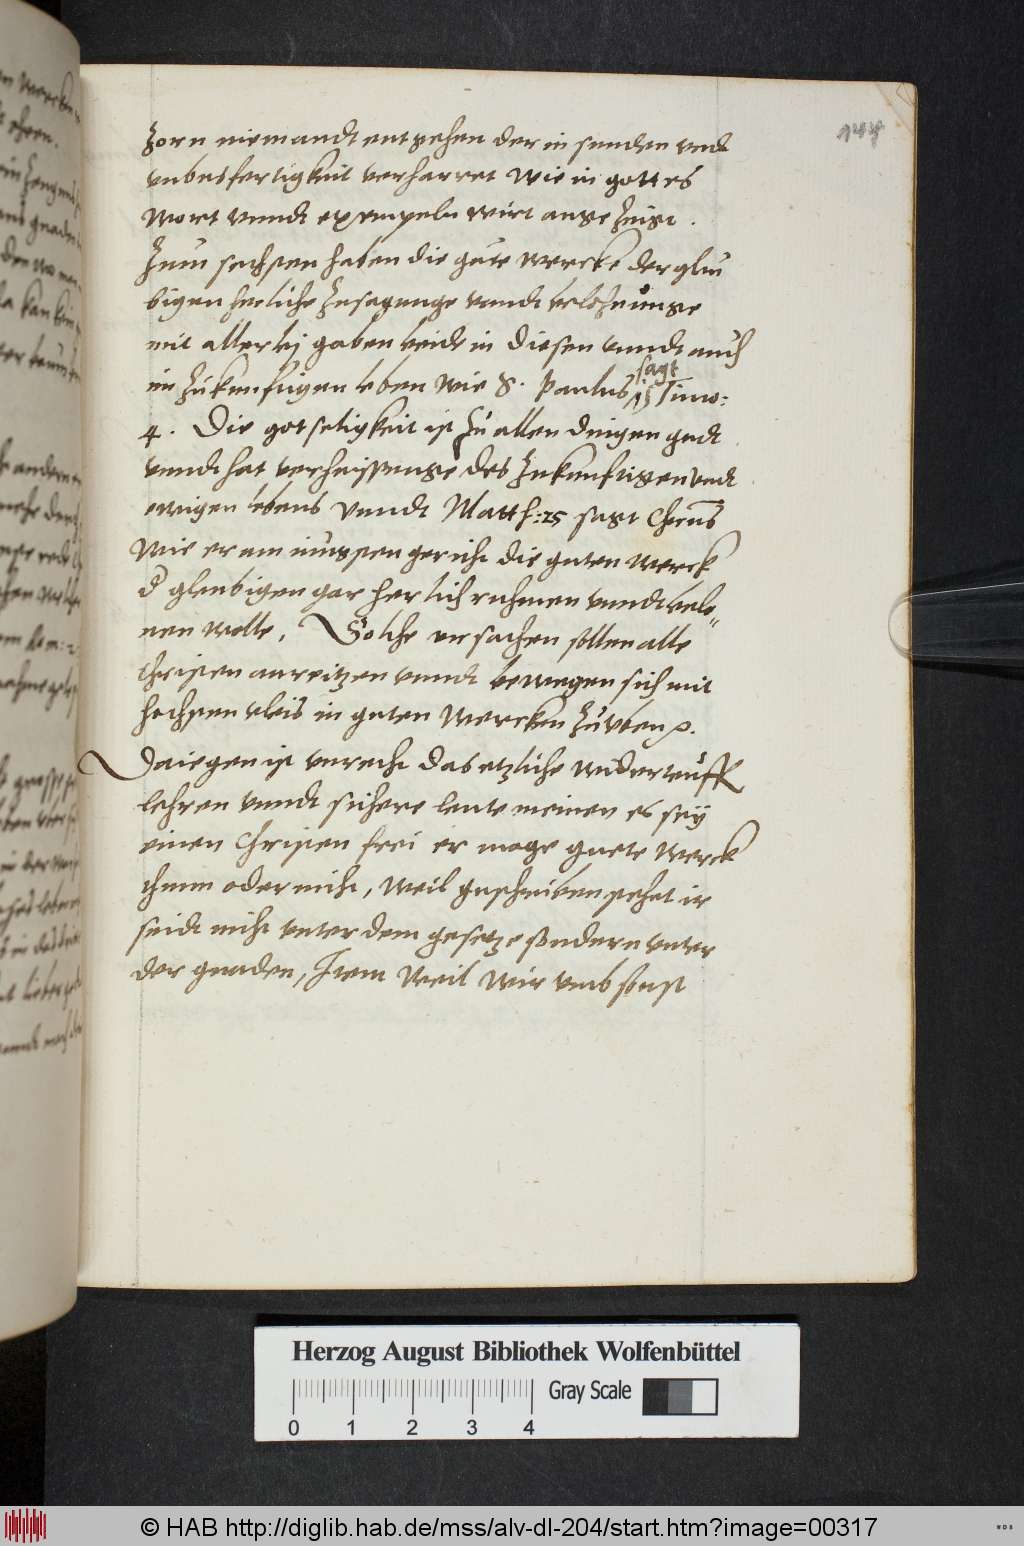 Zorn niemandt entgehen der in sunden vndt
vnbusfertigkeit verharret wie in gottes
wort vnndt exempeln wirt angezeigt.
Zum sechsten haben die gute wercke der gleu
bigen herliche zusagunge vnndt belohnunge
mit allerlej gaben beide in diesen vnndt auch
im zukunftigen leben wie S. Paulus sagt 1 Timo:
4. Die gotseligkeit ist zu allen dingen gudt
vnndt hat verheissunge des zukunftigen vndt
ewigen lebens Vnndt Matth: 25 sagt Christus
Wie er am iungsten gericht die guten werck
d gleubigen gar herlich ruhmen vnndt belo„
nen wolle. Solche vrsachen sollen alle
Christen anreitzen vnndt bewegen sich mit
hochsten vleis in guten Wercken zu vben
Dajegen ist vnrecht das etzliche widerteuffer
lehren vnndt sichere leute meinen es seij
einen Christen frei er moge guete werck
thunn oder nicht, weil geschriben stehet ir
seidt nicht vnter dem gesetze sondern vnter
der gnaden, Item Weil wir vmb sonst
Herzog August Bibliothek Wolfenbüttel
Gray Scale
0 1 2 3 4
© HAB http://diglib.hab.de/mss/alv-dl-204/start.htm?image=00317